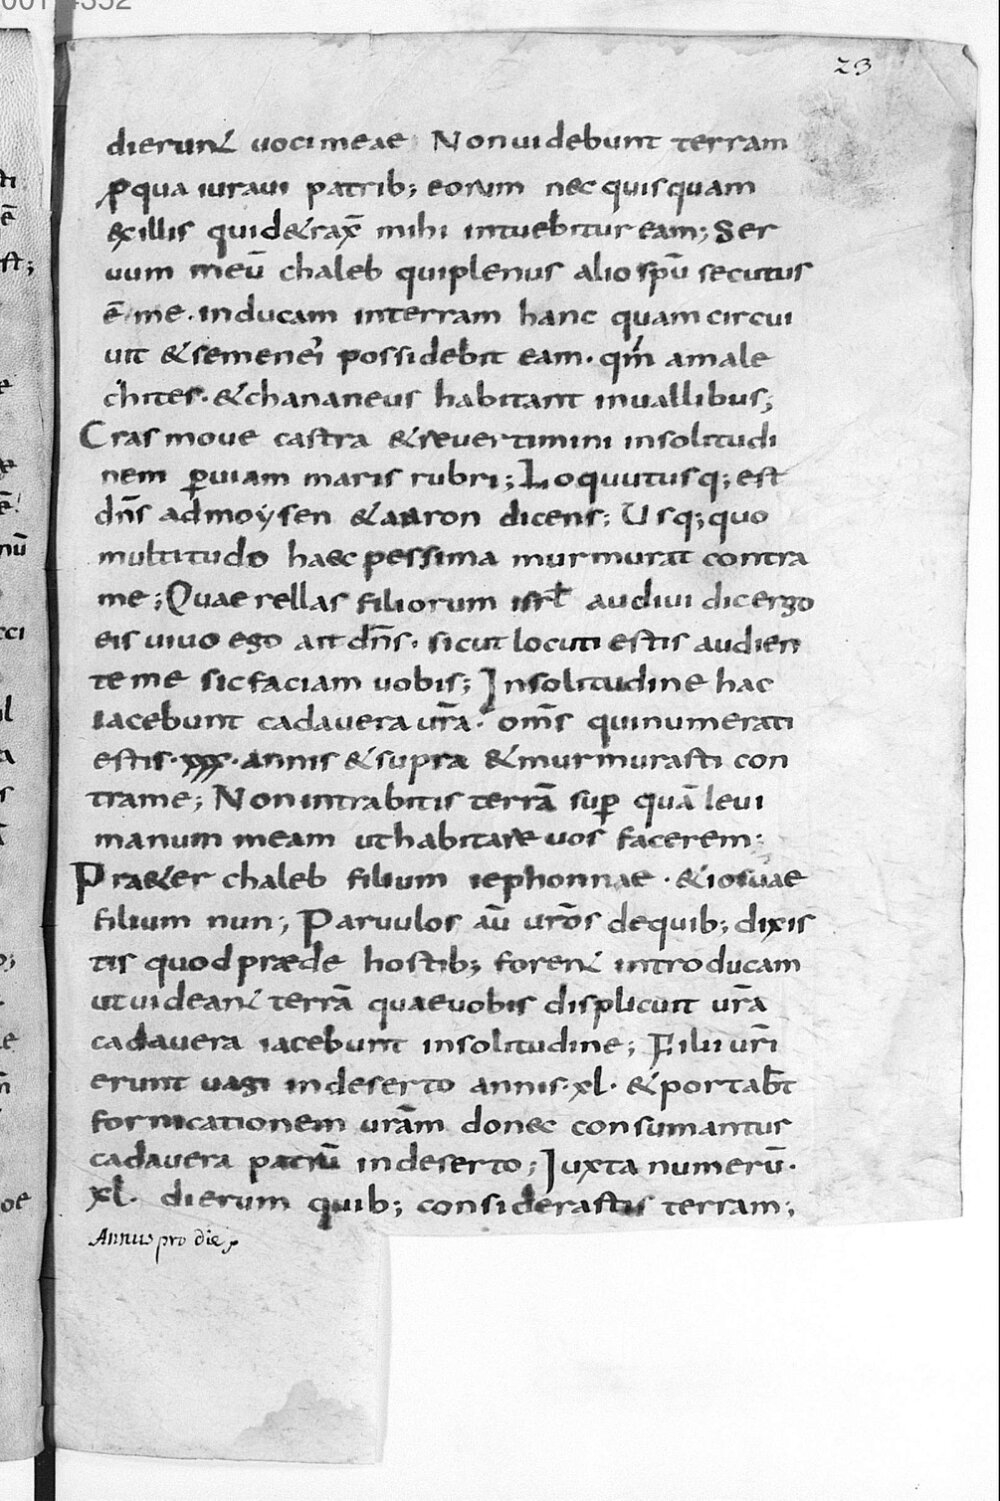 23
dierunt uoci meae Non uidebunt terram
ꝓ qua iuraui patrib; eorum nec quisquam
ex illis qui detrax̄ mihi intuebitur eam; Ser
uum meū chaleb qui plenus alio spū secutus
ē me. inducam in terram hanc quam circui
uit & semen ei possidebit eam. qm̄ amale
chites. & chananeus habitant in uallibus;
Cras moue castra & reuertimini in solitudi
nem ꝑ uiam maris rubri; Loquutusq; est
dn̄s ad moysen & aaron dicens; Usq; quo
multitudo haec pessima murmurat contra
me; Quaerellas filiorum isrl̄ audiui dic ergo
eis uiuo ego ait dn̄s. sicut locuti estis audien
te me sic faciam uobis; In solitudine hac
iacebunt cadauera ur̄a. om̄s qui numerati
estis. xx. annis & supra & murmurasti con
tra me; Non intrabitis terrā suꝑ quā leui
manum meam ut habitare uos facerem;
Praeter chaleb filium iephonnae. & iosuae
filium nun; Paruulos aū ur̄os de quib; dixis
tis quod praede hostib; forent introducam
ut uideant terrā quae uobis displicuit ur̄a
cadauera iacebunt in solitudine; Filii ur̄i
erunt uagi in deserto annis. xl. & portab̄t
fornicationem ur̄am donec consumantur
cadauera patrū in deserto; Iuxta numerū.
xl. dierum quib; considerastis terram;
Annus pro die